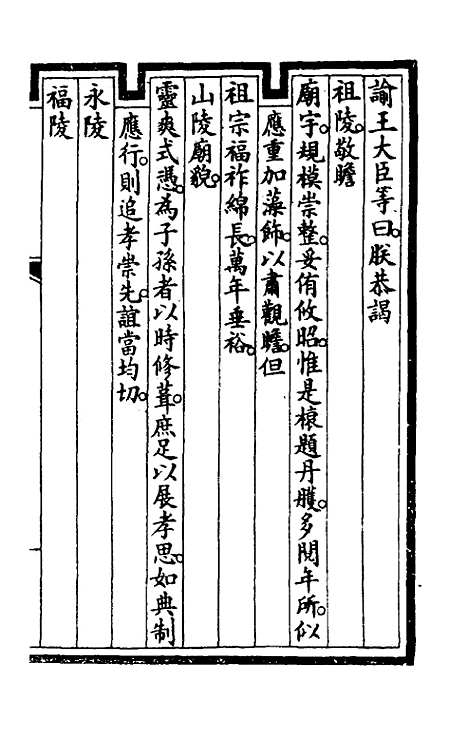 諭王大臣等曰。朕恭謁
祖陵。敬瞻
廟宇。規模崇整。妥侑攸昭。惟是榱題丹雘。多閱年所。似
應重加藻飾。以肅觀瞻。但
祖宗福祚綿長。萬年垂裕。
山陵廟貌。
靈爽式憑。為子孫者以時修葺。庶足以展孝思。如典制
應行。則追孝崇先。誼當均切。
永陵
福陵